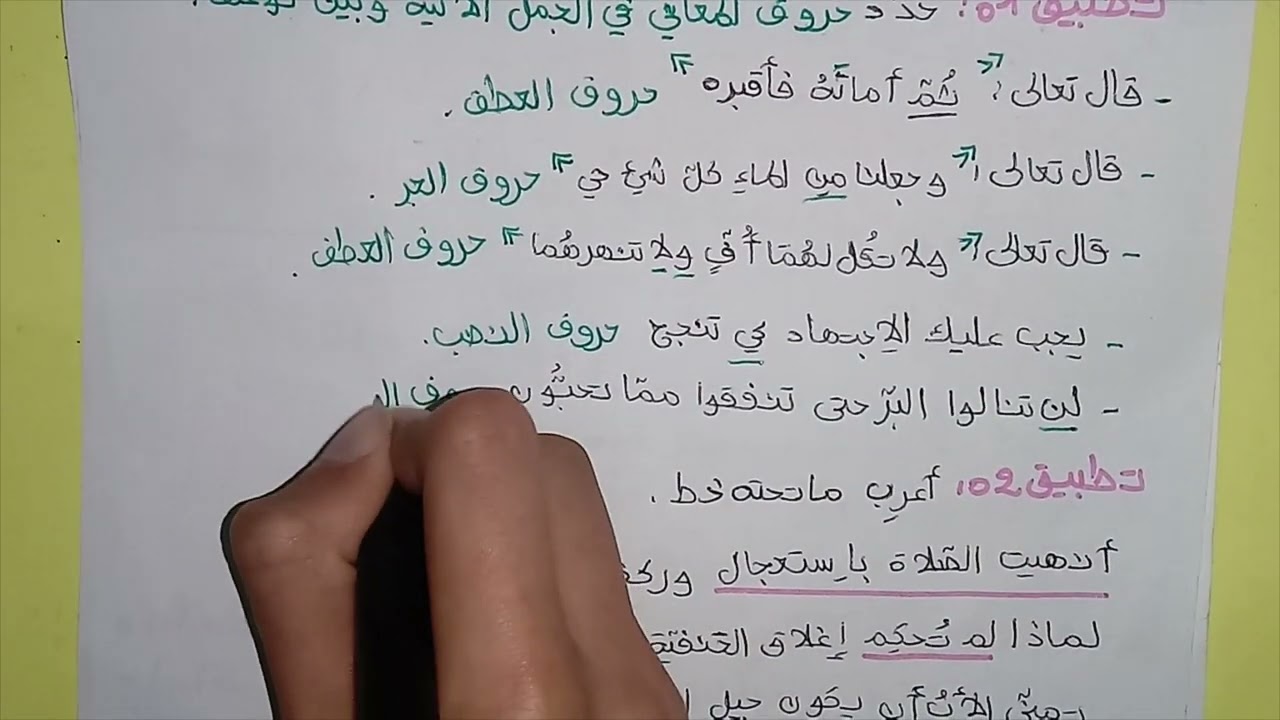 تطبيق 01: حدد حروف المعاني في الجمل الآتية وبين نوعها:
- قال تعالى: «ثُمّ أماتَهُ فأقبره» حروف العطف.
- قال تعالى: «وجعلنا مِن الماءِ كلّ شيءٍ حي» حروف الجر.
- قال تعالى: «ولا تقُل لهُمَا أُفٍّ ولا تنهرهُما» حروف العطف.
- يجب عليك الاِجتهاد كي تنجح حروف النصب.
- لن تنالوا البرّ حتى تنفقوا ممّا تحبُّون حروف الـ
تطبيق 02: أعرِب ما تحته خط.
أنهيت الصّلاة باِستعجال
لماذا لم تُحكِم إغلاق الحنفيّة
الأبُ أن يكون